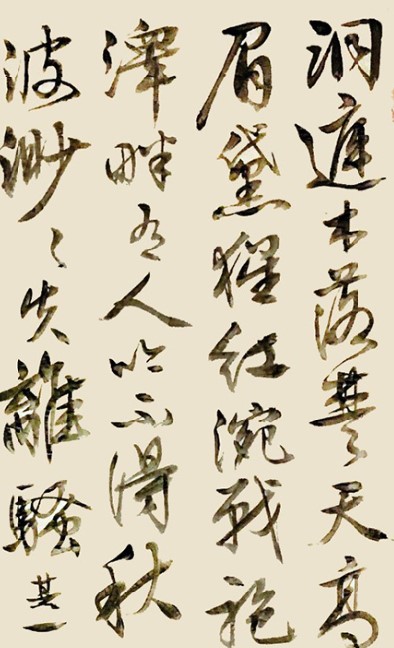 洞庭木落楚天高
眉黛猩紅涴戰袍
澤畔有人吟不得秋
波渺々失離騷其一